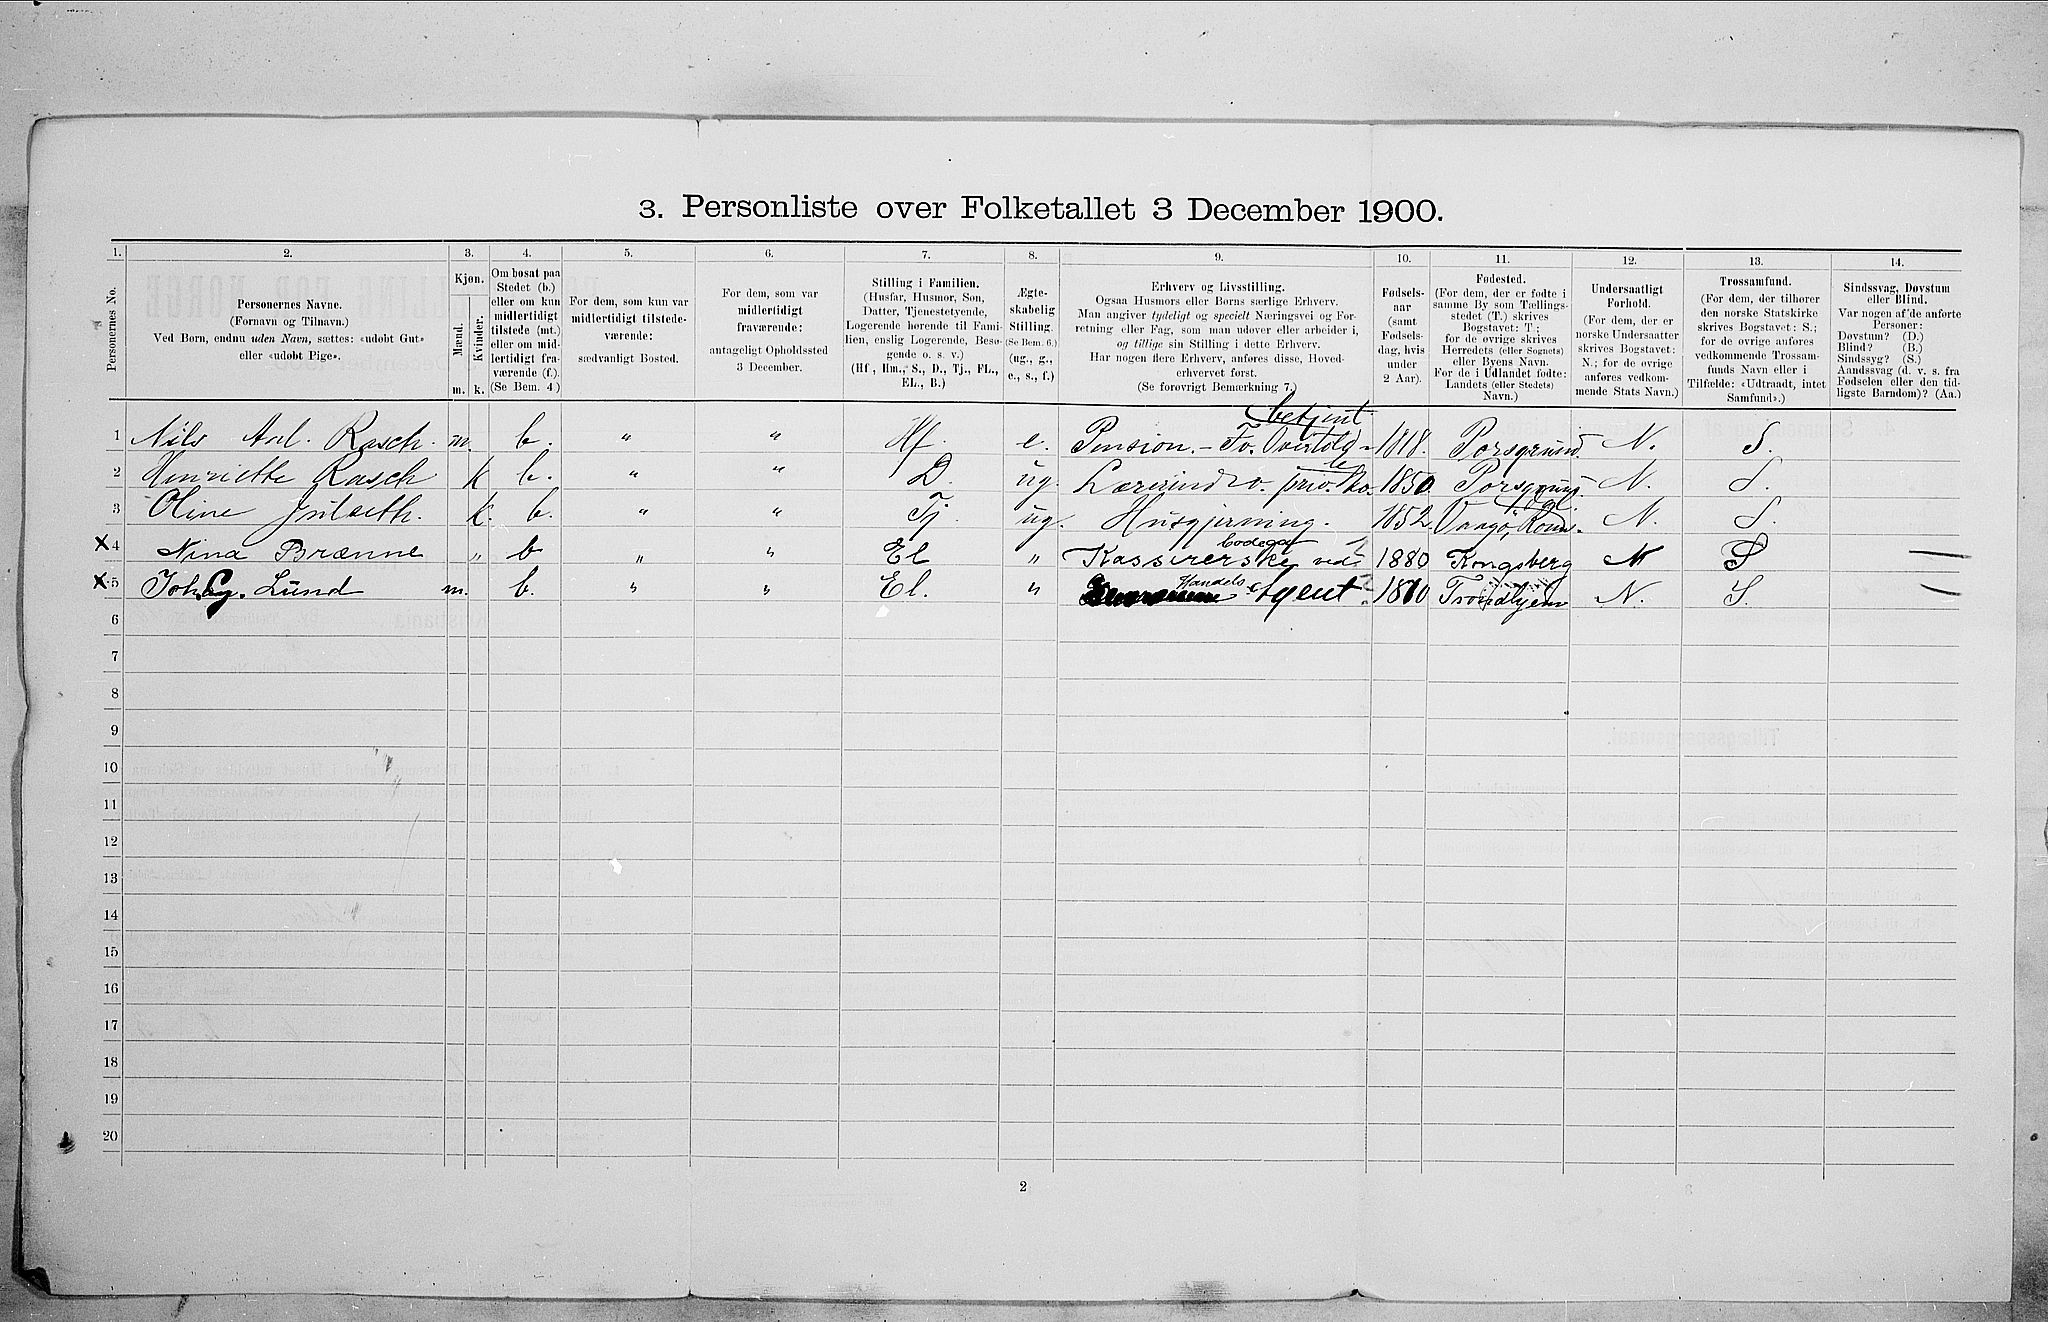 3. Personliste over Folketallet 3 December 1900.
1. 2. 3. 4. 5. 6. 7. 8. 9. 10. 11. 12. 13. 14.
Personernes No.
Personernes Navne.
(Fornavn og Tilnavn.)
Ved Børn, endnu uden Navn, sættes: «udøbt Gut»
eller «udøbt Pige».
Kjøn.
Mænd. Kvinder.
m. k.
Om bosat paa
Stedet (b.)
eller om kun
midlertidigt
tilstede (mt.)
eller om mid-
lertidigt fra-
værende (f.)
(Se Bem. 4.)
For dem, som kun var
midlertidigt tilstede-
værende:
sædvanligt Bosted.
For dem, som var
midlertidigt
fraværende:
antageligt Opholdssted
3 December.
Stilling i Familien.
(Husfar, Husmor, Søn,
Datter, Tjenestetyende,
Logerende hørende til Fami-
lien, enslig Logerende, Besø-
gende o. s. v.)
(Hf., Hm., S., D., Tj., FL.,
EL., B.)
Ægte-
skabelig
Stilling.
(Se Bem. 6.)
(ug., g.,
e., s., f.)
Erhverv og Livsstilling.
Ogsaa Husmors eller Børns særlige Erhverv.
Man angiver tydeligt og specielt Næringsvei og For-
retning eller Fag, som man udøver eller arbeider i,
og tillige sin Stilling i dette Erhverv.
Har nogen flere Erhverv, anføres disse, Hoved-
erhvervet først.
(Se forøvrigt Bemærkning 7.)
Fødsels-
aar
(samt
Fødsels-
dag, hvis
under
2 Aar).
Fødested.
(For dem, der er fødte i
samme By som Tællings-
stedet (T.) skrives
Bogstavet: T;
for de øvrige skrives
Herredets (eller Sognets)
eller Byens Navn.
For de i Udlandet fødte:
Landets (eller Stedets)
Navn.)
Undersaatligt
Forhold.
(For dem, der er
norske Undersaatter
skrives Bogstavet:
N.; for de øvrige
anføres vedkom-
mende Stats Navn.)
Trossamfund.
(For dem, der tilhører
den norske Statskirke
skrives Bogstavet: S.;
for de øvrige anføres
vedkommende Trossam-
funds Navn eller i
Tilfælde: «Udtraadt, intet
Samfund».)
Sindssvag, Døvstum
eller Blind.
Var nogen af de anførte
Personer:
Døvstum? (D.)
Blind? (B.)
Sindssyg? (S.)
Aandssvag (d. v. s. fra
Fødselen eller den tid-
ligste Barndom)? (Aa.)
betjent
1 Nils Rasch. m. b. " " Hf. e. Pension. - Fv. Overtold- 1818. Porsgrund. N. S.
2 Henriette Rasch k b. " " D. ug. Lærerinde v. priv. 1850. Porsgrund. N. S.
3 Oline k. b. " " Tj. ug. Husgjerning. 1852. N. S.
Bodega
X 4 Nina Brænne " b " " El " Kassererske ved 1880 Kongsberg N S —
Handels
X 5 Joh. Lund m. b. " " El. " Agent. 1870 Trondhjem N. S. —
6
7
8
9
10
11
12
13
14
15
16
17
18
19
20
2